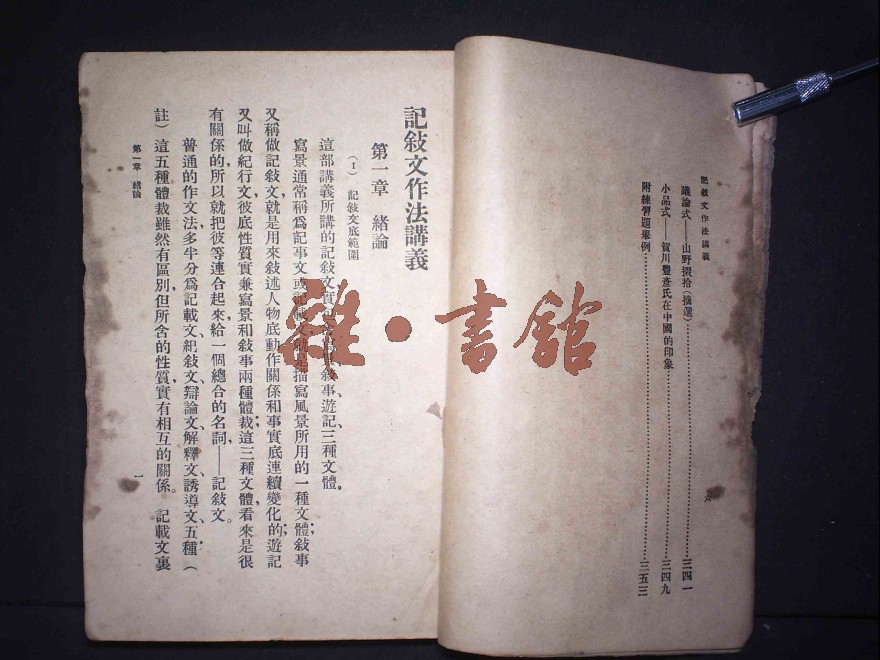 記敍文作法講義
議論式——山野掇拾(摘選)……三四一
小品式——賀川豐彥氏在中國的印象……三四九
附練習題舉例……三五三
六
記敍文作法講義
第一章 緒論
(I) 記敍文底範圍
這部講義所講的記敍文實 敍事、遊記、三種文體。
寫景通常稱爲記事文或記載文,就是描寫風景所用的一種文體;敍事
又稱做記敍文,就是用來敍述人物底動作關係和事實底連續變化的;遊記
又叫做紀行文,彼底性質實兼寫景和敍事兩種體裁;這三種文體,看來是很
有關係的,所以就把彼等連合起來,給一個總合的名詞——記敍文。
普通的作文法,多半分爲記載文、紀敍文、辯論文、解釋文、誘導文、五種,(
註)這五種體裁雖然有區別,但所含的性質實有相互的關係。 記載文裏
第一章 緒論
一
雜·書館